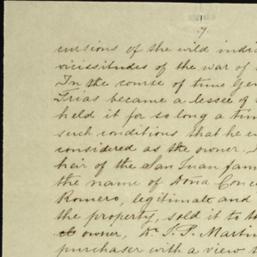 7
cursions of the wild indi
vicissitudes of the war of
In the course of time Gen
Trias became a lessee of
held it for so long a tim
such conditions that he c
considered as the owner.
heir of the San Juan fam
the name of Doña Conc
Romero, legitimate and
the property, sold it to
owner, Dr. J. P. Martin
purchaser with a view t